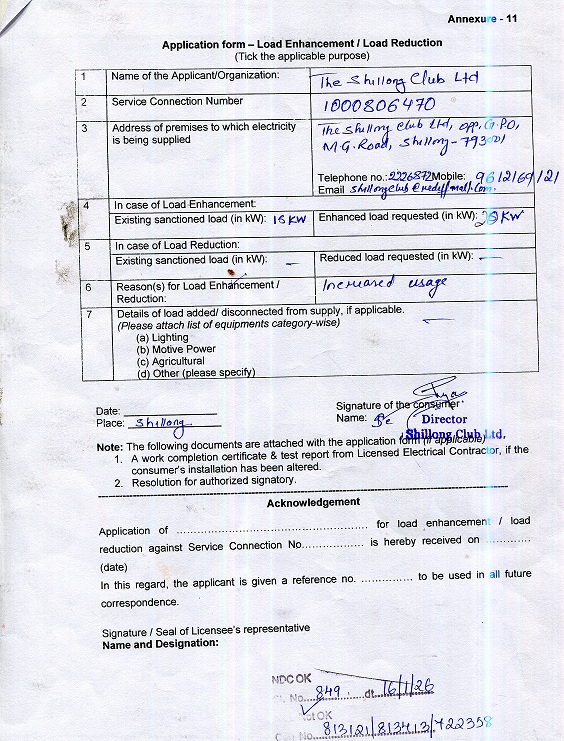 Annexure - 11
Application form – Load Enhancement / Load Reduction
(Tick the applicable purpose)
1 Name of the Applicant/Organization: The Shillong Club Ltd
2 Service Connection Number 1000806470
3 Address of premises to which electricity is being supplied The Shillong Club Ltd, opp. G.P.O,
M.G. Road, Shillong - 793001
Telephone no.: 2226872 Mobile: 9612169121
Email shillongclub@rediffmail.com.
4 In case of Load Enhancement:
Existing sanctioned load (in kW): 15 KW Enhanced load requested (in kW): KW
5 In case of Load Reduction:
Existing sanctioned load (in kW): — Reduced load requested (in kW): —
6 Reason(s) for Load Enhancement / Reduction: Increased usage
7 Details of load added/ disconnected from supply, if applicable. —
(Please attach list of equipments category-wise)
(a) Lighting
(b) Motive Power
(c) Agricultural
(d) Other (please specify)
Date:
Place: Shillong
Signature of the consumer
Name:
Director
Shillong Club Ltd.
Note: The following documents are attached with the application form (if applicable)
1. A work completion certificate & test report from Licensed Electrical Contractor, if the
consumer's installation has been altered.
2. Resolution for authorized signatory.
Acknowledgement
Application of ................................................ for load enhancement / load
reduction against Service Connection No................ is hereby received on ............
(date)
In this regard, the applicant is given a reference no. .............. to be used in all future
correspondence.
Signature / Seal of Licensee's representative
Name and Designation:
NDC OK
No....849......dt..16/1/26
OK
No. 813121/813413/722358